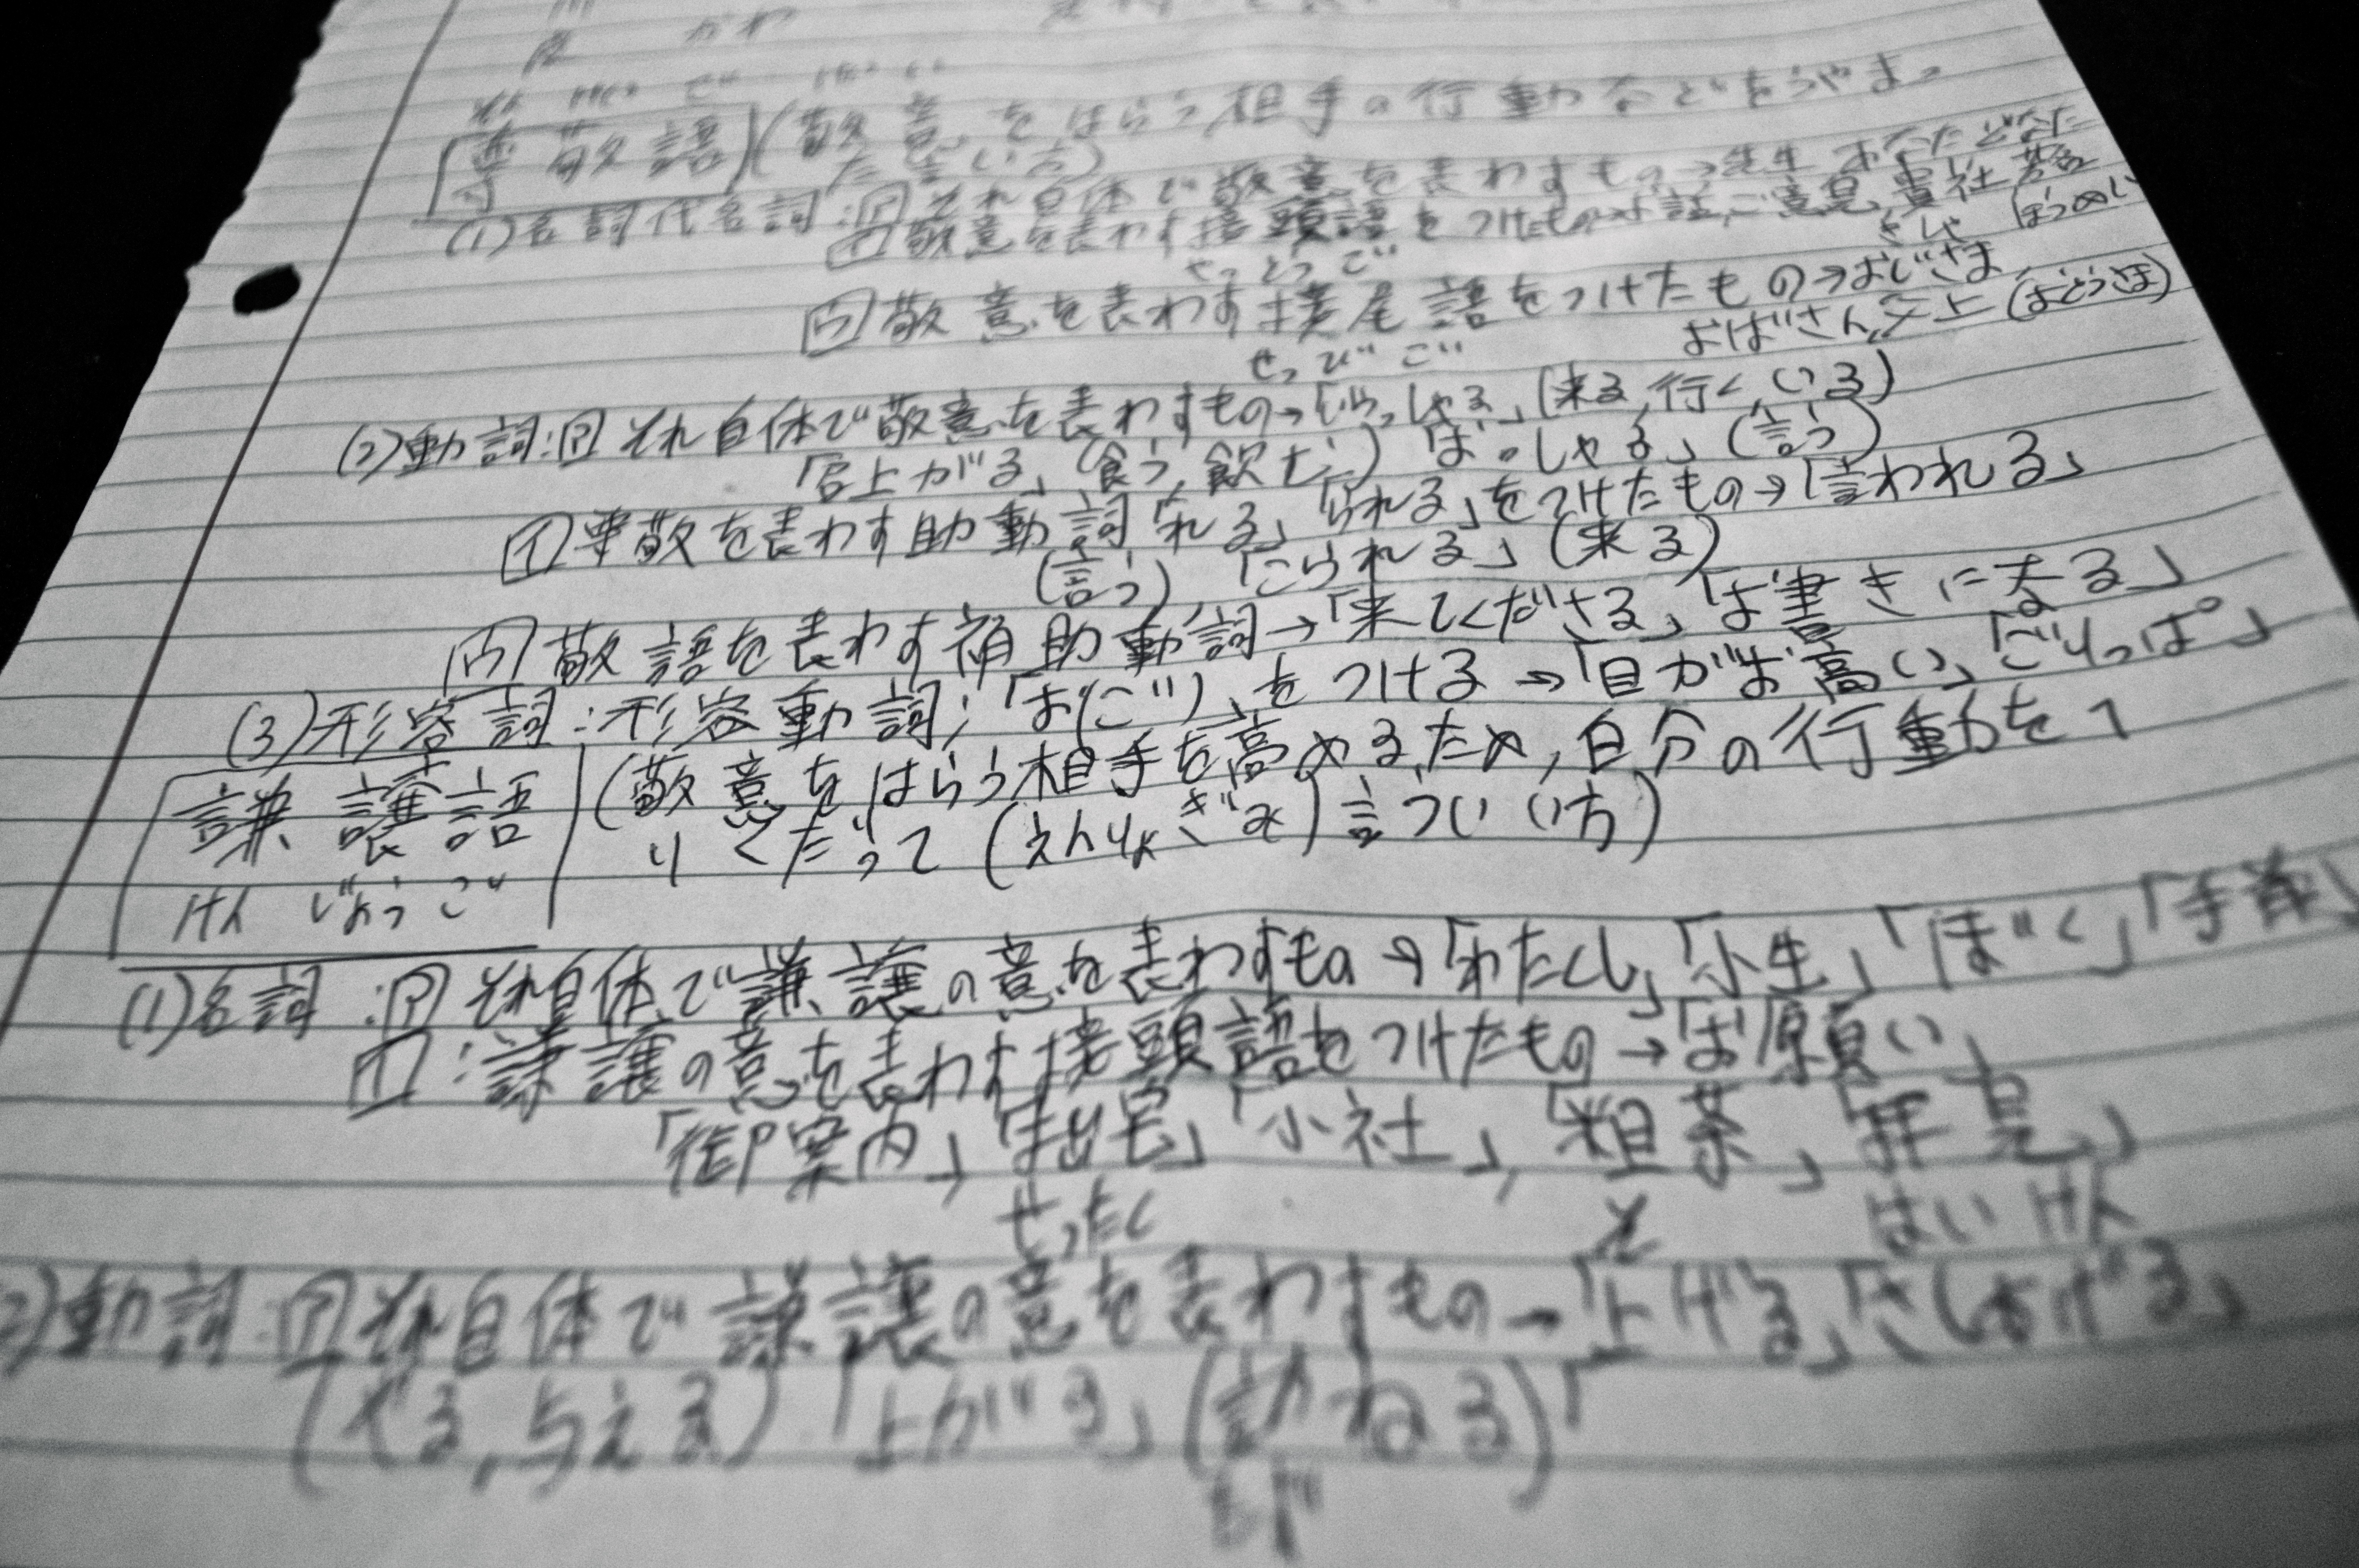 かわ
そん けい ご
尊敬語 (敬意をはらう相手の行動などをうやまっ
た言い方)
(1)名詞代名詞:ア それ自体で敬意を表わすもの→先生 あなた どなた
イ 敬意を表わす接頭語をつけたもの→お話,ご意見,貴社 芳名
せっとうご きしゃ (ほうめい
ウ 敬意を表わす接尾語をつけたもの→おじさま,
せつびご おばさん,父上(おとうさま)
(2)動詞:ア それ自体で敬意を表わすもの→「いらっしゃる」(来る,行く,いる)
「召上がる」(食う,飲む) 「おっしゃる」(言う)
イ 尊敬を表わす助動詞「れる」「られる」をつけたもの→「言われる」
(言う),「こられる」(来る)
ウ 敬語を表わす補助動詞→「来てくださる」「お書きになる」
(3)形容詞:形容動詞;「お(ご)」をつける→「目がお高い」「ごりっぱ」
謙譲語 (敬意をはらう相手を高めるため,自分の行動をへ
けん じょう ご りくだって(えんりょぎみ)言つい い方)
(1)名詞:ア それ自体で謙譲の意を表わすもの→「わたくし」「小生」「ぼく」「手前」
イ:謙譲の意を表わす接頭語をつけたもの→「お願い」
「御案内」「拙宅」「小社」,「粗茶」「拝見」
せったく そ はいけん
2)動詞:ア それ自体で謙譲の意を表わすもの→「上げる」「さしあげる」
(やる,与える)「上がる」(訪ねる)「